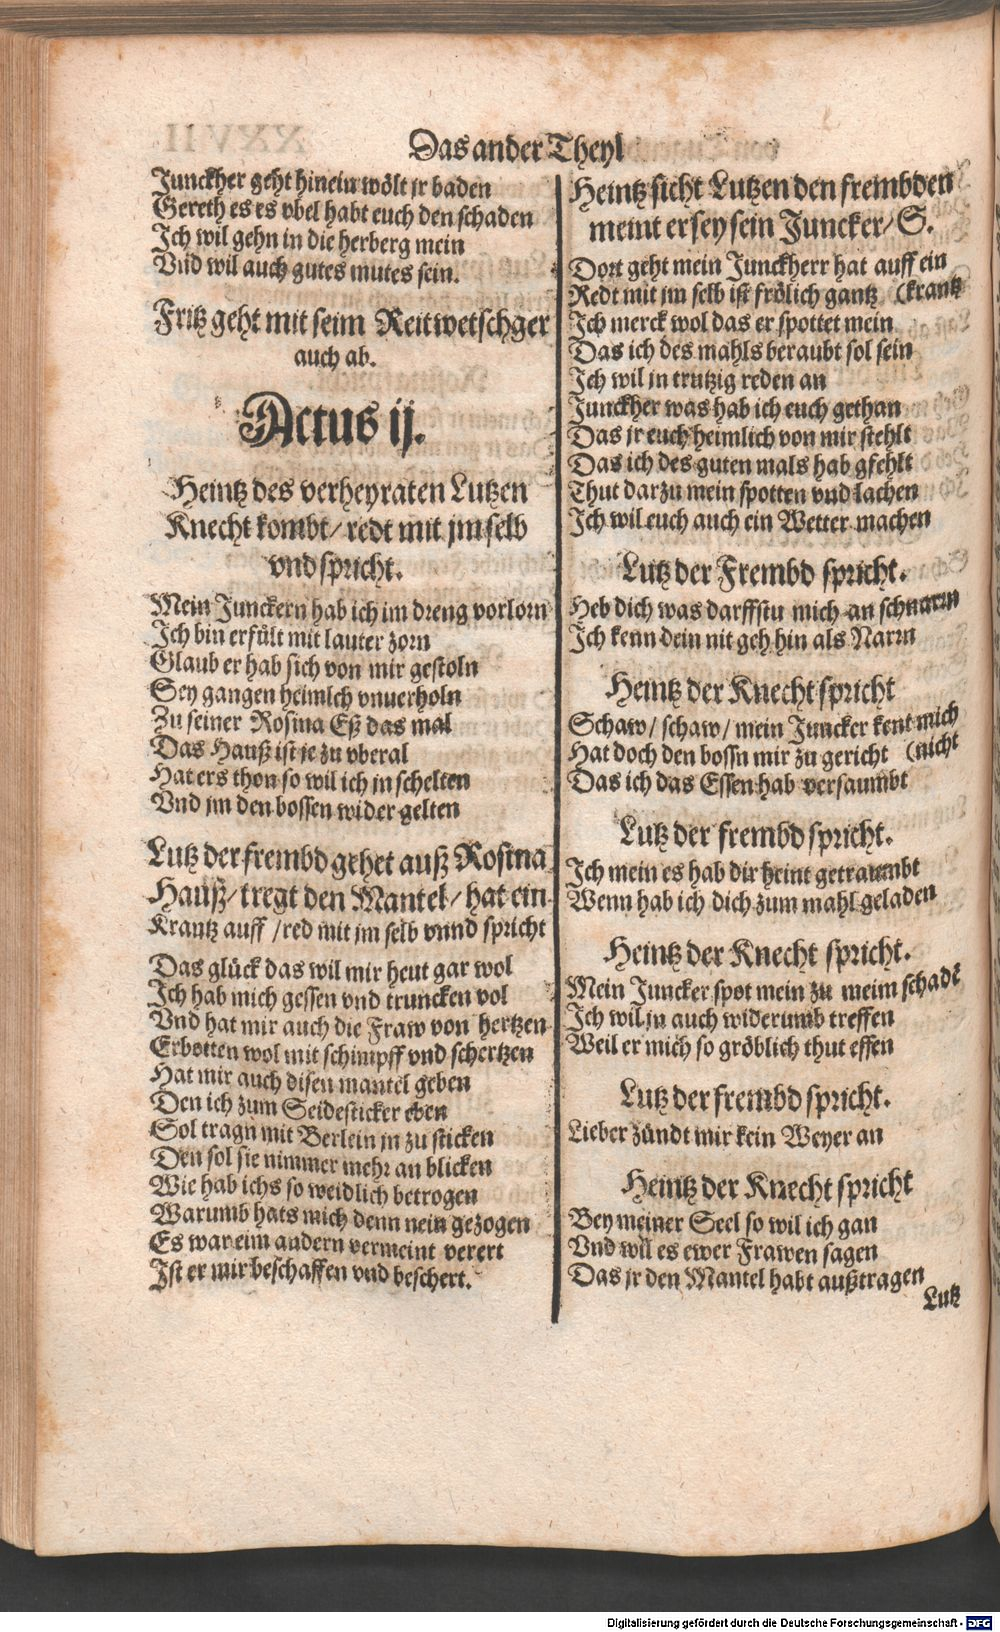 Das ander Theyl
Junckher geht hinein wölt jr baden
Gereth es es vbel habt euch den schaden
Ich wil gehn in die herberg mein
Vnd wil auch gutes mutes sein.
Fritz geht mit seim Reitwetschger
auch ab.
Actus ij.
Heintz des verheyraten Lutzen
Knecht kombt / redt mit jm selb
vnd spricht.
Mein Junckern hab ich im dreng vorlorn
Ich bin erfült mit lauter zorn
Glaub er hab sich von mir gestoln
Sey gangen heimlch vnuerholn
Zu seiner Rosina Eß das mal
Das Hauß ist je zu vberal
Hat ers thon so wil ich jn schelten
Vnd jm den bossen wider gelten
Lutz der frembd gehet auß Rosina
Hauß / tregt den Mantel / hat ein
Krantz auff / red mit jm selb vnnd spricht
Das glück das wil mir heut gar wol
Ich hab mich gessen vnd truncken vol
Vnd hat mir auch die Fraw von hertzen
Erbotten wol mit schimpff vnd schertzen
Hat mir auch disen mantel geben
Den ich zum Seidesticker eben
Sol tragn mit Berlein jn zu sticken
Den sol sie nimmer mehr an blicken
Wie hab ichs so weidlich betrogen
Warumb hats mich denn nein gezogen
Es war eim andern vermeint verert
Ist er mir beschaffen vnd beschert.
Heintz sicht Lutzen den frembden
meint er sey sein Juncker / S.
Dort geht mein Junckherr hat auff ein
Redt mit jm selb ist frölich gantz (krantz
Ich merck wol das er spottet mein
Das ich des mahls beraubt sol sein
Ich wil jn trutzig reden an
Junckher was hab ich euch gethan
Das jr euch heimlich von mir stehlt
Das ich des guten mals hab gfehlt
Thut darzu mein spotten vnd lachen
Ich wil euch auch ein Wetter machen
Lutz der Frembd spricht.
Heb dich was darffstu mich an schnarrn
Ich kenn dein nit geh hin als Narrn
Heintz der Knecht spricht
Schaw / schaw / mein Juncker kent mich
Hat doch den bossn mir zu gericht (nicht
Das ich das Essen hab versaumbt
Lutz der frembd spricht.
Ich mein es hab dir heint getraumbt
Wenn hab ich dich zum mahl geladen
Heintz der Knecht spricht.
Mein Juncker spot mein zu meim schadē
Ich wil jn auch widerumb treffen
Weil er mich so gröblich thut effen
Lutz der frembd spricht.
Lieber zündt mir kein Weyer an
Heintz der Knecht spricht
Bey meiner Seel so wil ich gan
Vnd wil es ewer Frawen sagen
Das jr den Mantel habt außtragen
Lutz
Digitalisierung gefördert durch die Deutsche Forschungsgemeinschaft - DFG